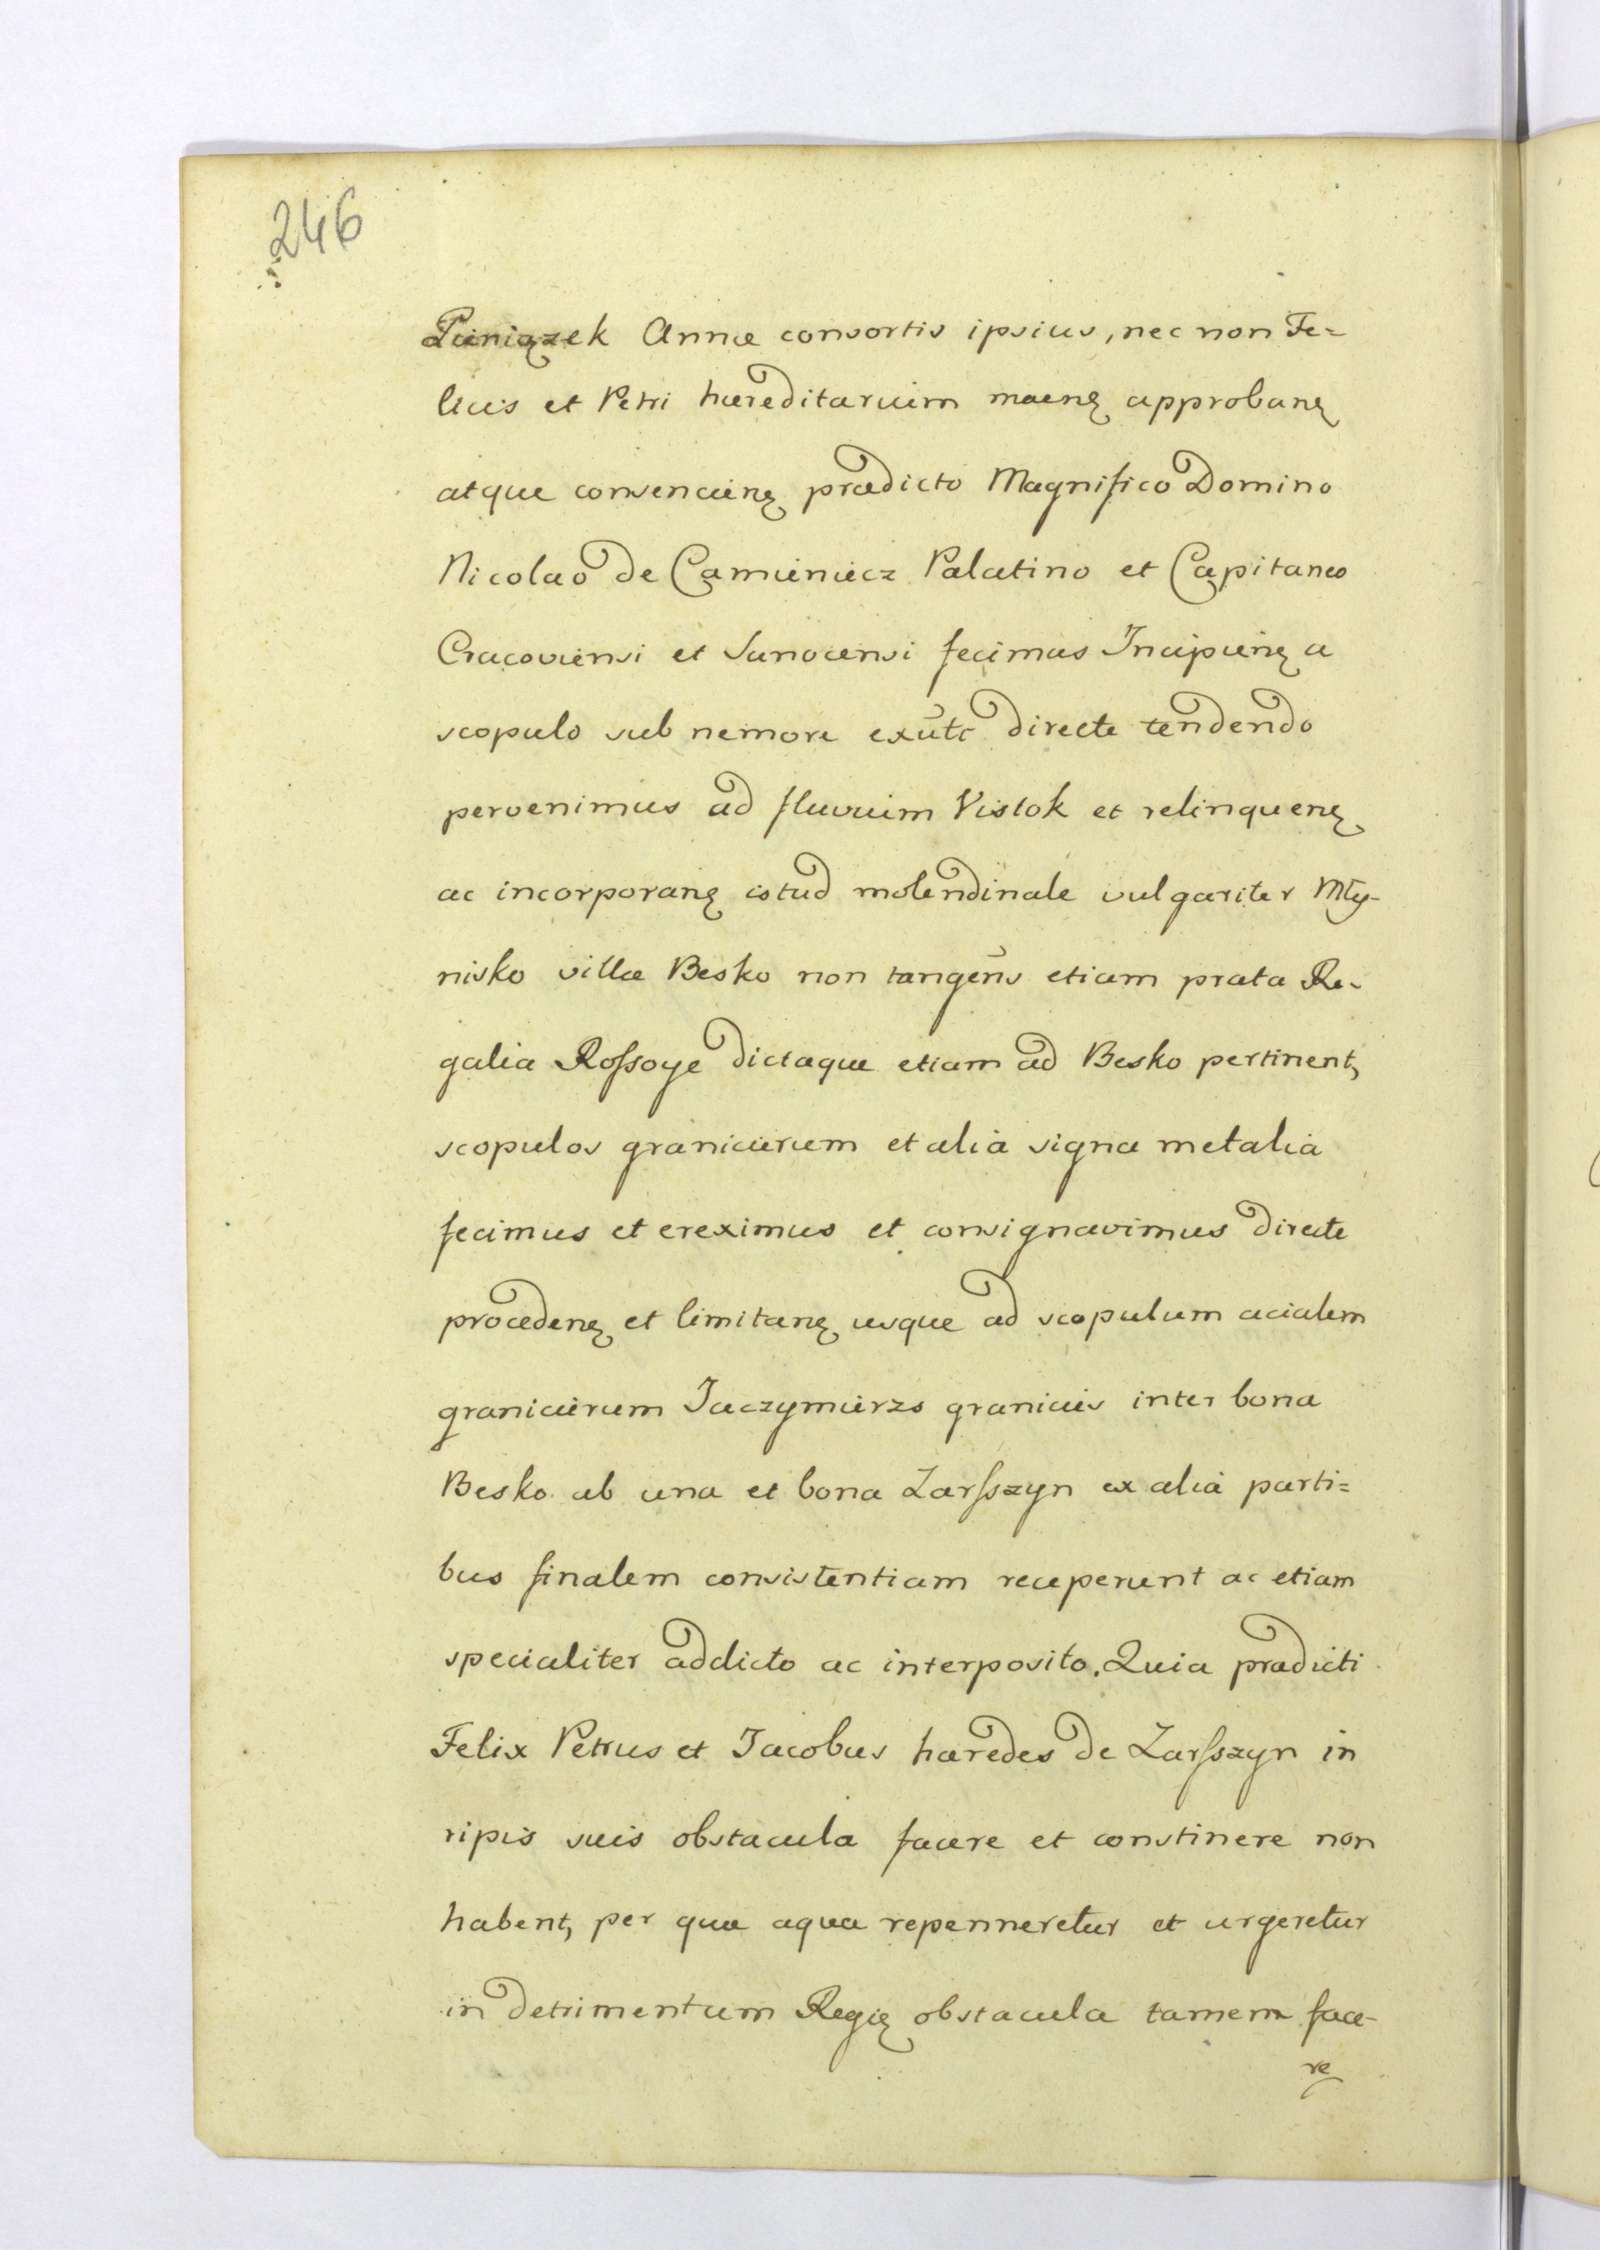 246
Pieniązek Annæ consortis ipsius, nec non Fe=
licis et Petri hæreditarium maenę approbanę
atque convencienę prædicto Magnifico Domino
Nicolao de Camieniecz Palatino et Capitaneo
Cracoviensi et Sanocensi fecimus Incipienę a
scopulo sub nemore exūtc directe tendendo
pervenimus ad fluvium Vislok et relinquenę
ac incorporanę istud molendinale vulgariter Mły-
nisko villæ Besko non tangen̄s etiam prata Re-
galia Rossoye dictaque etiam ad Besko pertinent,
scopulos granicierum et alia signa metalia
fecimus et ereximus et consignavimus directe
procedenę et limitanę usque ad scopulum acialem
granicierum Jaczymierzs granicies inter bona
Besko ab una et bona Zarsszyn ex alia parti=
bus finalem consistentiam receperunt ac etiam
specialiter addicto ac interposito. Quia prædicti
Felix Petrus et Jacobus hæredes de Zarsszyn in
ripis suis obstacula facere et constinere non
habent, per quæ aqua repenneretur et urgeretur
in detrimentum Regię obstacula tamen face-
re